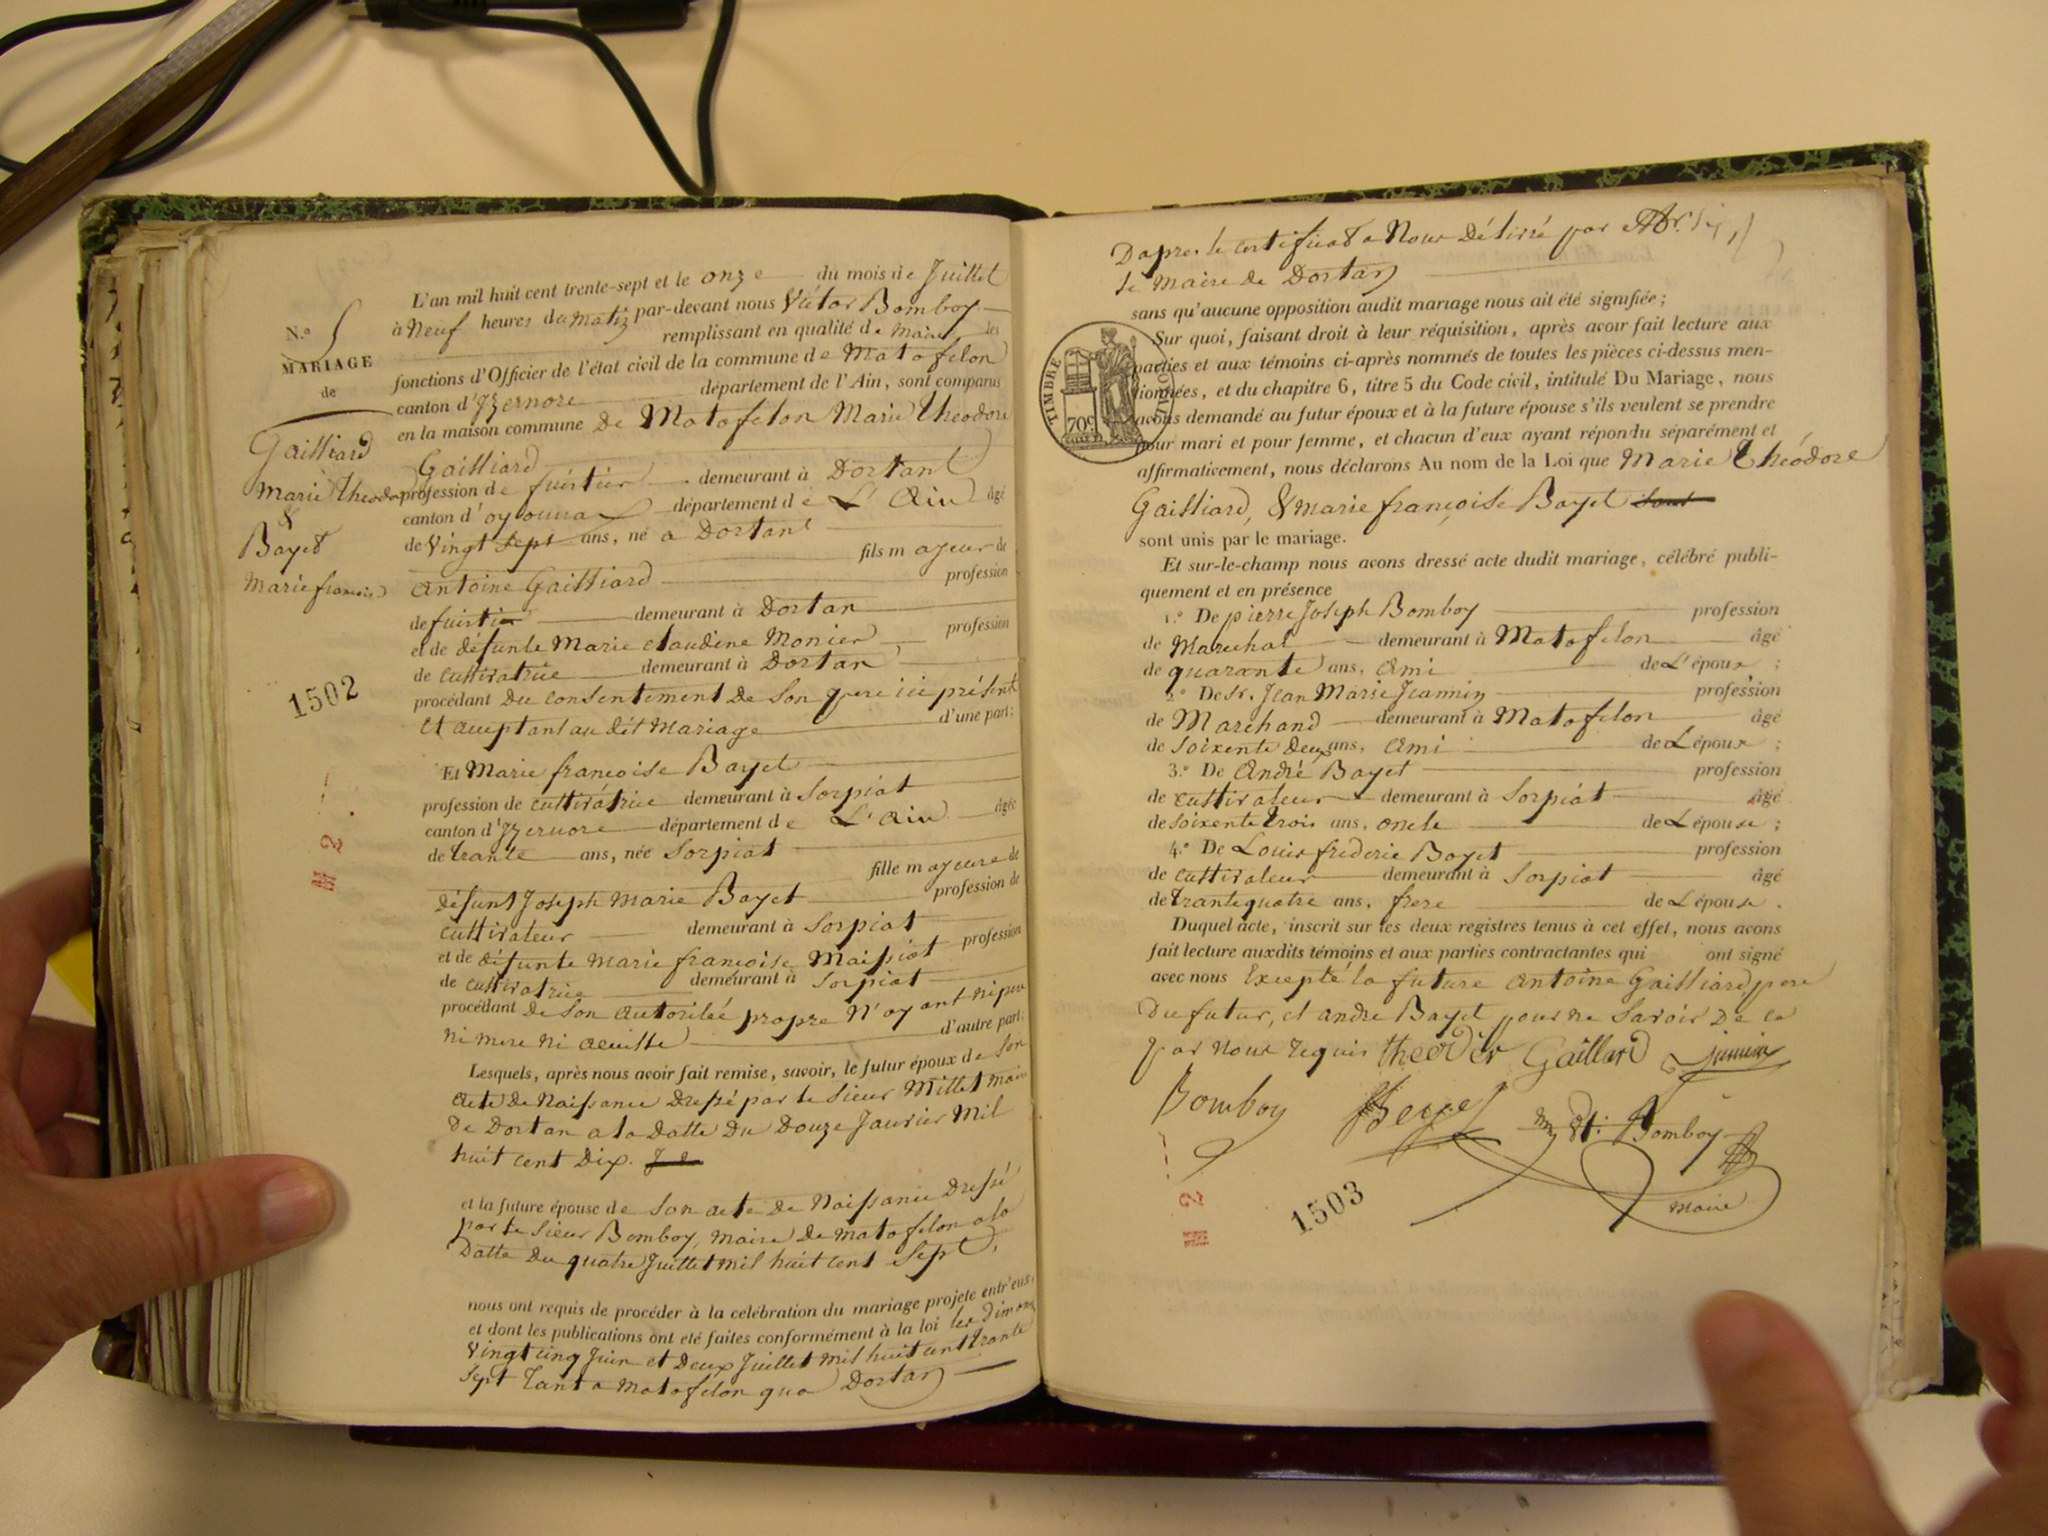 L'an mil huit cent trente-sept et le onze du mois de Juillet
à Neuf heures du Matin par-devant nous Victor Bomboy
remplissant en qualité de Maire les
fonctions d'Officier de l'état civil de la commune de Matafelon
canton d'Izernore département de l'Ain, sont comparus
en la maison commune de Matafelon Marie Theodore
Gailliard
profession de fustier demeurant à Dortant
canton d'oyonnax département de L'Ain âgé
de Vingt Sept ans, né a Dortant
fils majeur de
Antoine Gailliard profession
de fustier demeurant à Dortan
et de défunte Marie claudine Monier profession
de cultivatrice demeurant à Dortan
procédant du consentement de Son pere ici présent
et acceptant au dit Mariage d'une part;
Et Marie françoise Bayet
profession de cultivatrice demeurant à Sorpiat
canton d'Izernore département de L'Ain âgée
de trante ans, née Sorpiat
fille majeure de
défunt Joseph Marie Bayet profession de
cultivateur demeurant à Sorpiat
et de défunte marie françoise Maissiat profession
de cultivatrice demeurant à Sorpiat
procédant de Son autorité propre N'ayant ni pere
ni mere ni aeuille d'autre part;
Lesquels, après nous avoir fait remise, savoir, le futur époux de Son
acte de Naissance Dressé par le Sieur Millet maire
de Dortan a la Datte du Douze Janvier Mil
huit cent Dix.
et la future épouse de Son acte de Naissance Dressé
par le Sieur Bomboy, maire de matafelon a la
Datte du quatre Juillet mil huit cent Sept,
nous ont requis de procéder à la celébration du mariage projete entr'eux,
et dont les publications ont été faites conformément à la loi les Dimanc
Vingt cinq Juin et Deux Juillet mil huit cent trante
Sept tant a matafelon qua Dortan
N.° 5
MARIAGE
de
Gailliard
Marie theodore
&
Bayet
Marie francois
1502
M 2
Dapres le certificat a Nous Délivré par
le Maire de Dortan
sans qu'aucune opposition audit mariage nous ait été signifiée;
Sur quoi, faisant droit à leur réquisition, après avoir fait lecture aux
parties et aux témoins ci-après nommés de toutes les pièces ci-dessus men-
tionnées, et du chapitre 6, titre 5 du Code civil, intitulé Du Mariage, nous
avons demandé au futur époux et à la future épouse s'ils veulent se prendre
pour mari et pour femme, et chacun d'eux ayant répondu séparément et
affirmativement, nous déclarons Au nom de la Loi que Marie Théodore
Gailliard, & marie françoise Bayet sont
sont unis par le mariage.
Et sur-le-champ nous avons dressé acte dudit mariage, célébré publi-
quement et en présence
1.° De pierre Joseph Bomboy profession
de Marechal demeurant à Matafelon âgé
de quarante ans, ami de L'époux ;
2.° De Sr. Jean Marie Jeannin profession
de Marchand demeurant à Matafelon âgé
de Soixente Deux ans, ami de L'époux ;
3.° De André Bayet profession
de cultivateur demeurant à Sorpiat âgé
de Soixente trois ans, oncle de L'épouse ;
4.° De Louis frederic Bayet profession
de cultivateur demeurant à Sorpiat âgé
de trante quatre ans, frere de L'épouse .
Duquel acte, inscrit sur les deux registres tenus à cet effet, nous avons
fait lecture auxdits témoins et aux parties contractantes qui ont signé
avec nous Excepté la future Antoine Gailliard pere
Du futur, et andre Bayet pour ne Savoir De ce
par Nous requis theodor Gaillard
Bomboy Beyet Bomboy
maire
TIMBRE ROYAL
70c
1503
M 2